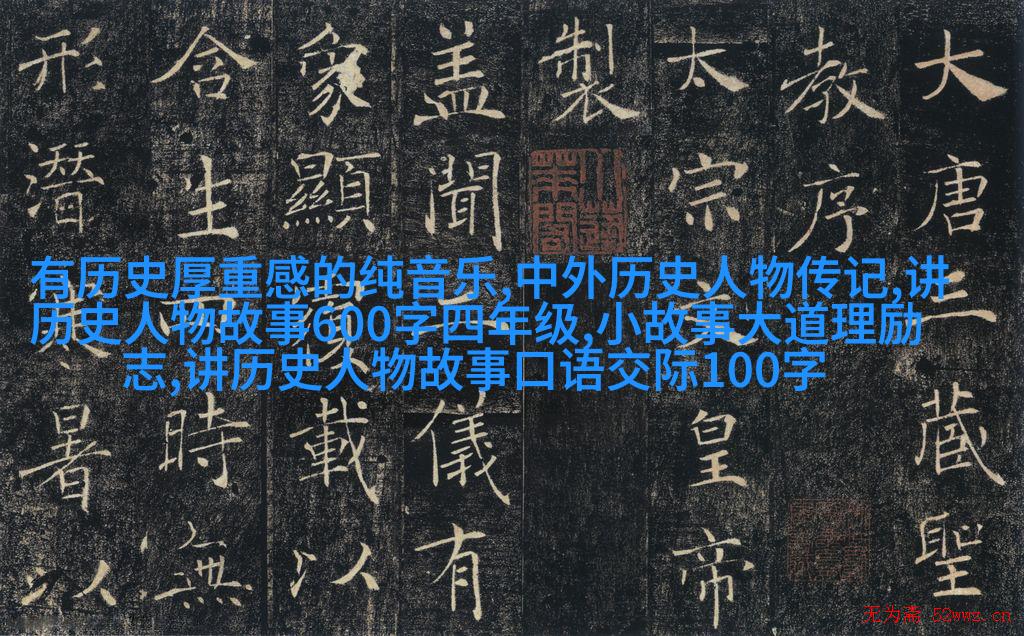 大唐三藏聖
教序
太宗文皇帝
製
盖聞二儀有
象顯覆載以
含生四時無
形潛寒暑以
有历史厚重感的纯音乐,中外历史人物传记,讲
历史人物故事600字四年级,小故事大道理励
志,讲历史人物故事口语交际100字
无为斋 52wwz.cn